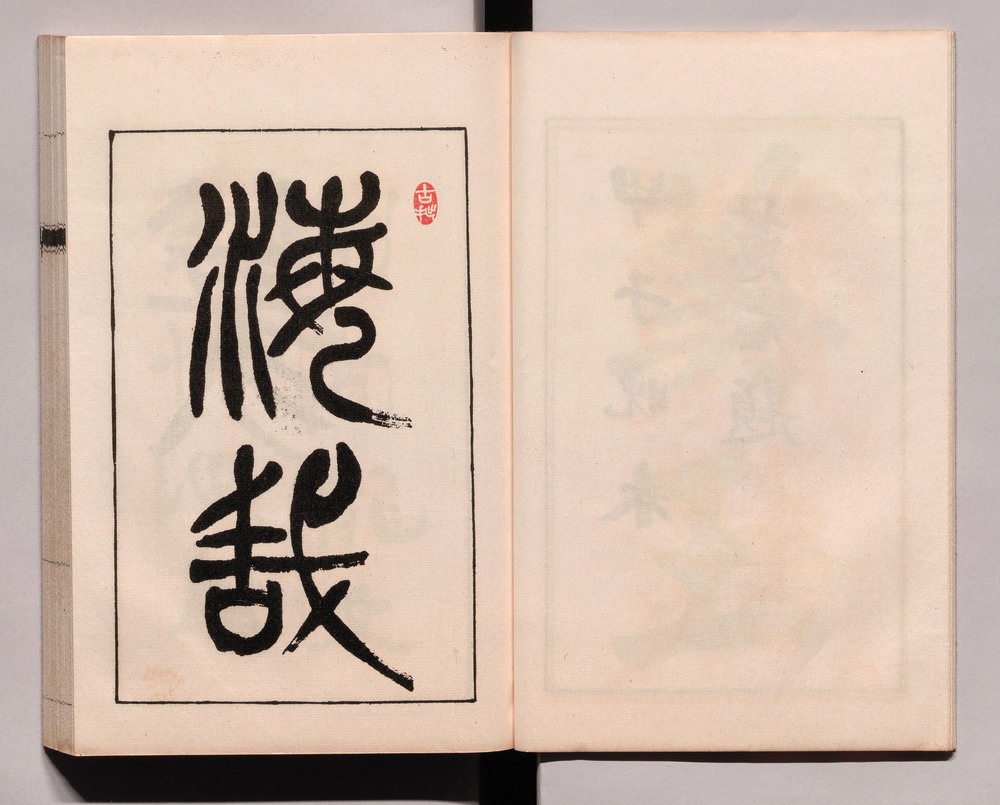 古拙
海哉